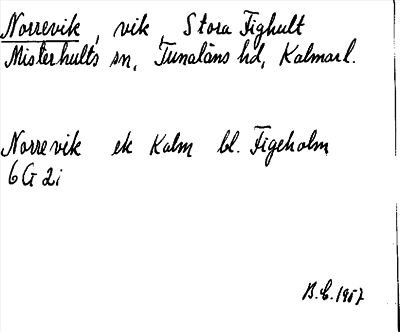 Norrevik, vik, Stora Fighult
Misterhults sn, Tunaläns hd, Kalmarl.
Norrevik ek Kalm bl. Figeholm
6G2i
B.E. 1957